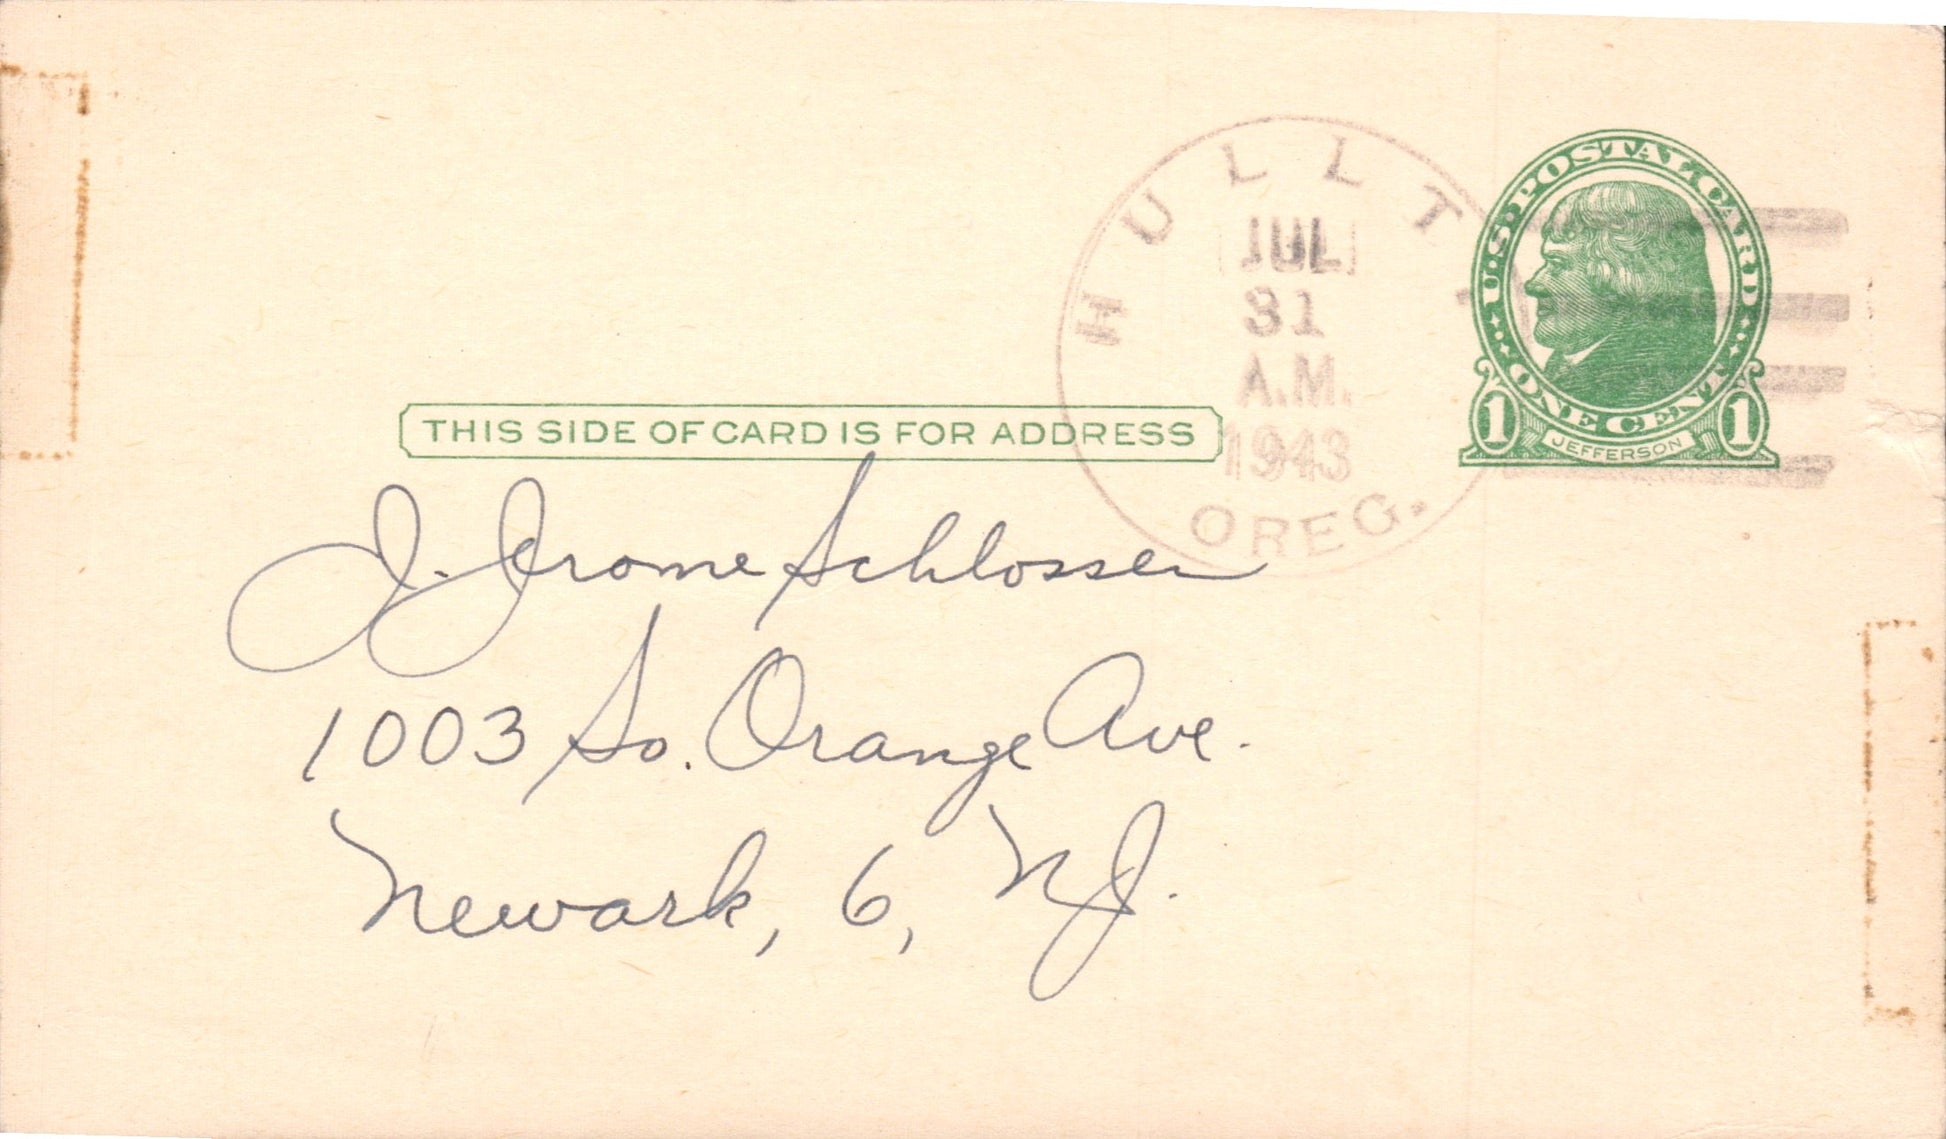 HULLT
JUL
31
A.M.
1943
OREG.
U.S. POSTAL CARD
ONE CENT
1 JEFFERSON 1
THIS SIDE OF CARD IS FOR ADDRESS
J. Jerome Schlosser
1003 So. Orange Ave.
Newark, 6, NJ.